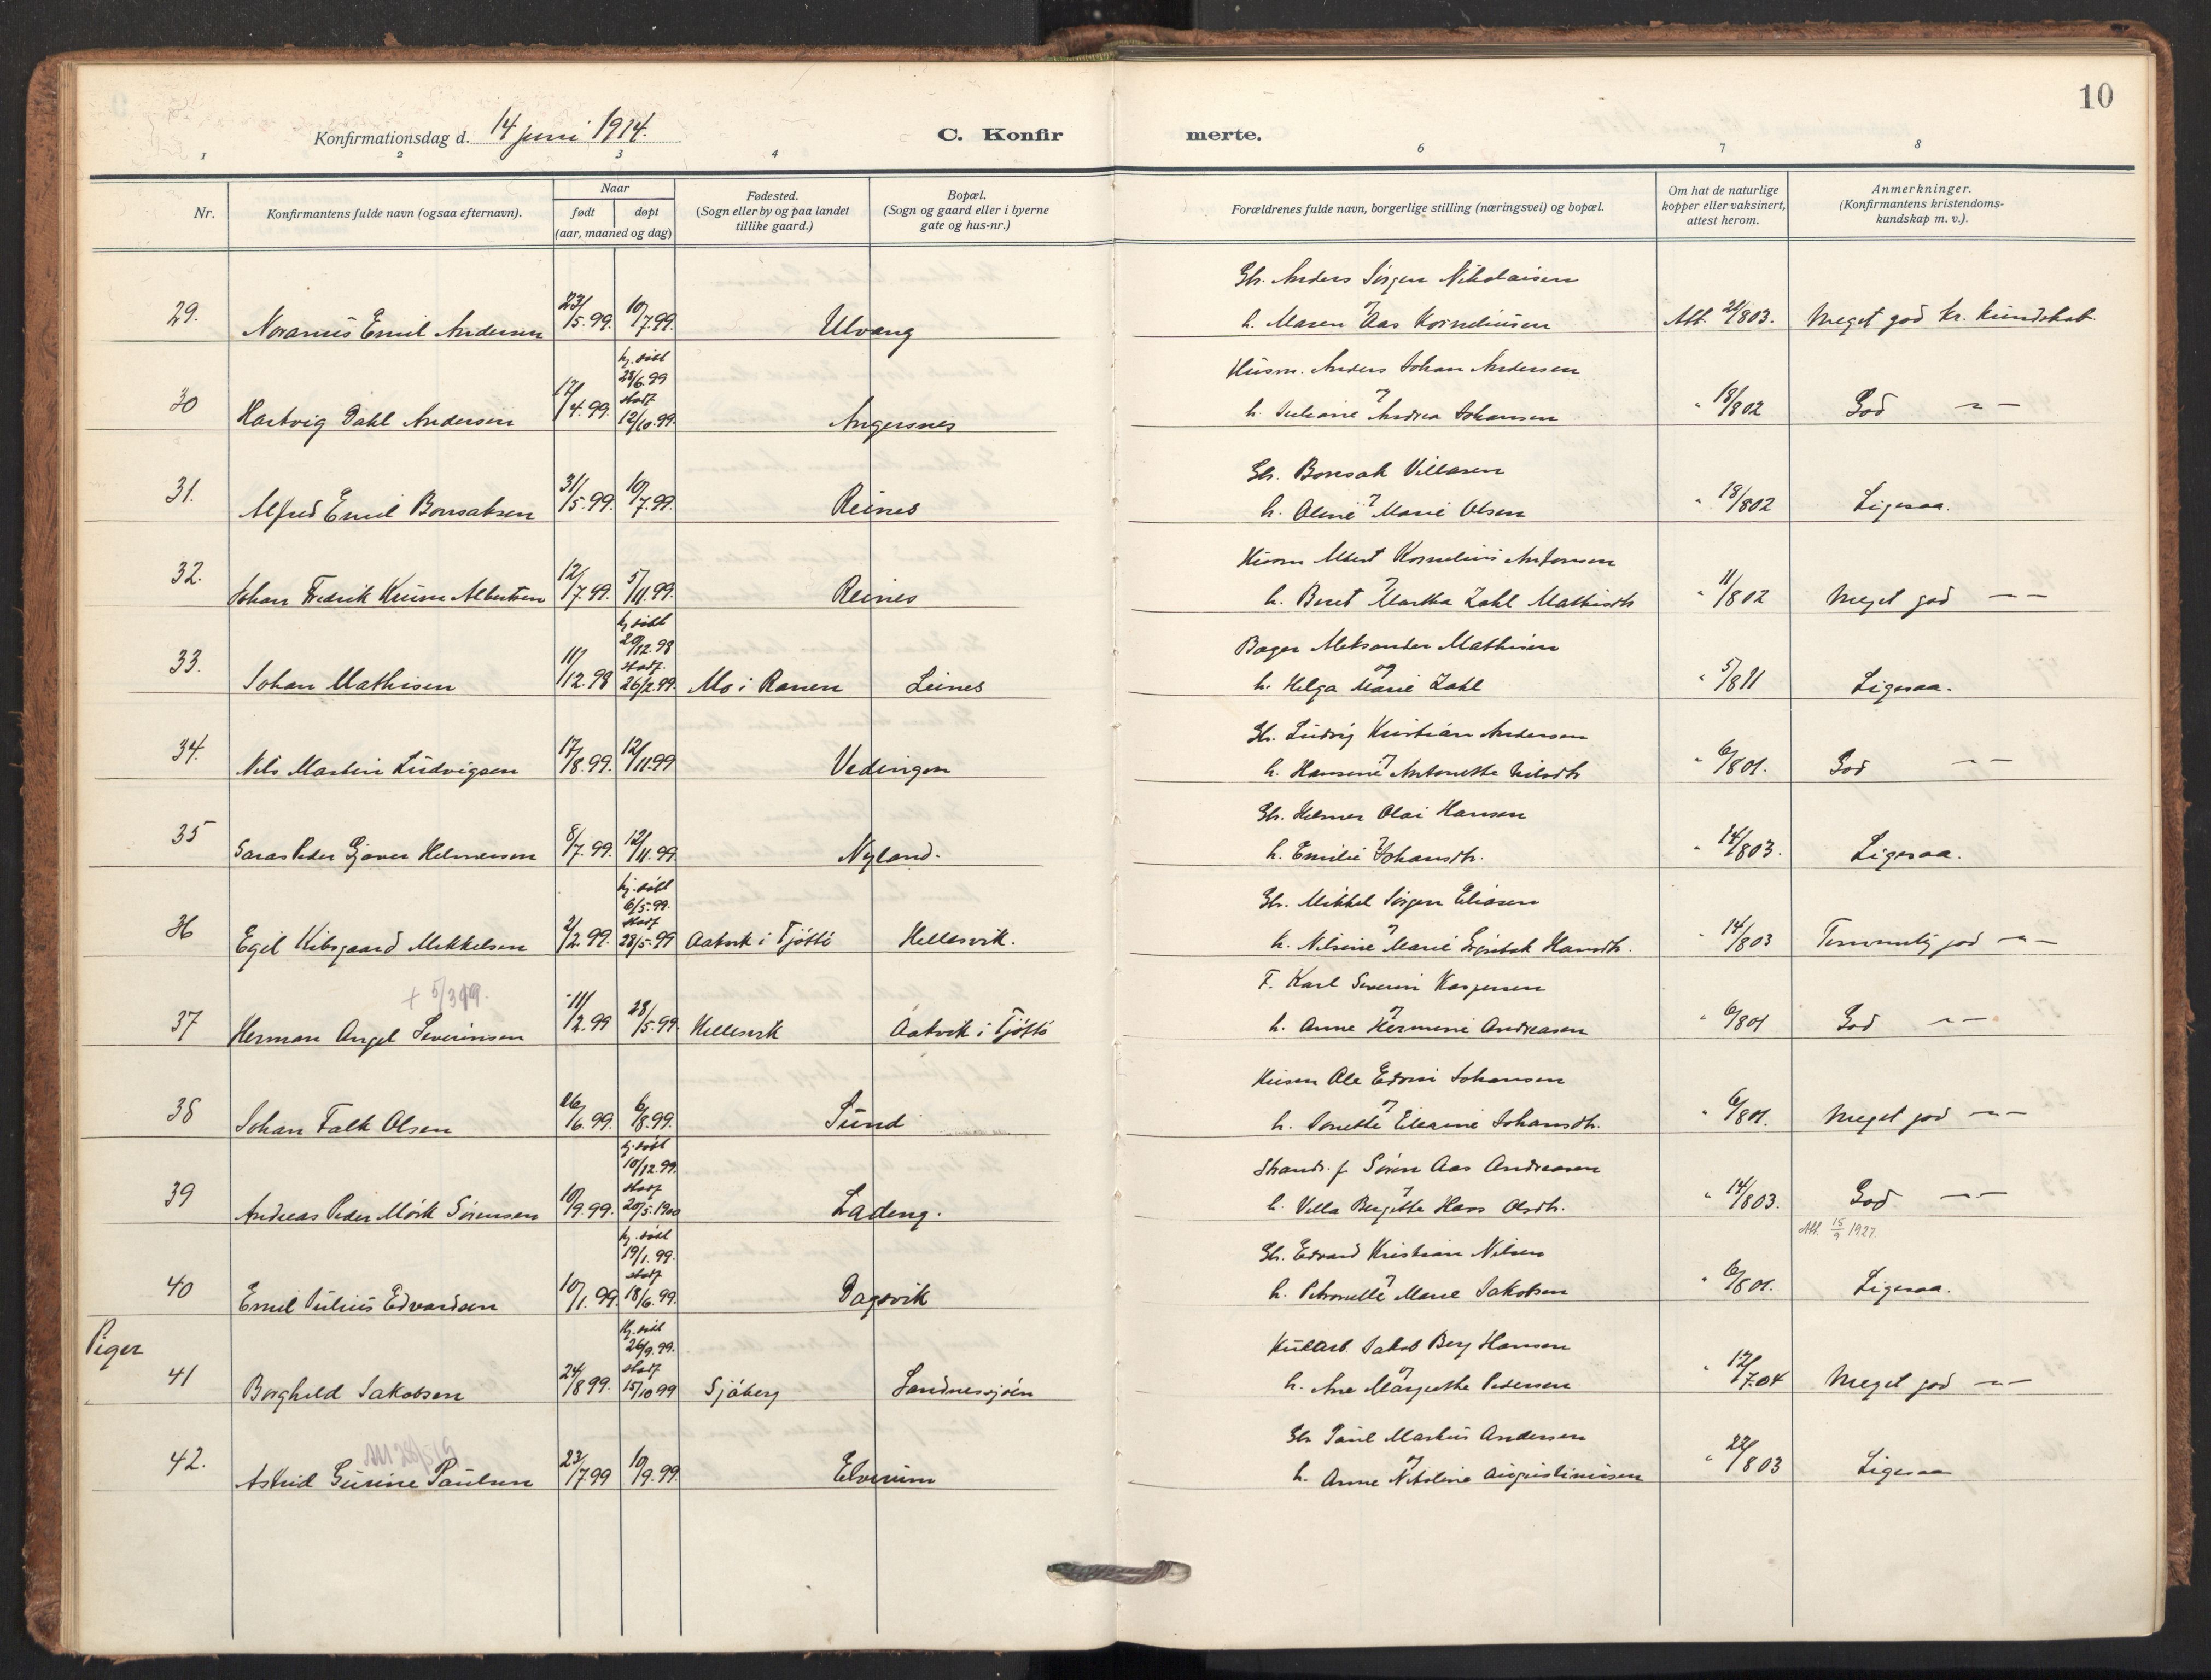 10
Konfirmationsdag d. 14 juni 1914.
C. Konfir merte.
1 2 3 4 6 7 8
Nr.
Konfirmantens fulde navn (ogsaa efternavn).
Naar
født døpt
(aar, maaned og dag)
Fødested.
(Sogn eller by og paa landet
tillike gaard.)
Bopæl.
(Sogn og gaard eller i byerne
gate og hus-nr.)
Forældrenes fulde navn, borgerlige stilling (næringsvei) og bopæl.
Om hat de naturlige
kopper eller vaksinert,
attest herom.
Anmerkninger.
(Konfirmantens kristendoms-
kundskap m. v.).
Gbr. Anders Jørgen Nikolaisen
og
29. Noranus Emil Andersen 23/5.99. 10/7.99. Ulvang h. Maren Aas Korneliusen Att. 21/803. Meget god kr. kundskab.
hj. døbt
28/6.99
stadf
Husm. Anders Johan Andersen
og
30 Hartvig Dahl Andersen 17/4.99. 12/10.99. Angersnes h. Juliane Andrea Johansen " 18/802 God — " —
Gbr. Bonsak Villasen
og
31. Alfred Emil Bonsaksen 31/5.99. 10/7.99. Reines h. Oline Marie Olsen " 18/802 Ligesaa.
Husm Albert Kornelius Antonsen
og
32. Johan Fredrik Krum Albertsen 12/7.99. 5/11.99. Reines h. Beret Martha Zahl Mathisdtr " 11/802 Meget god — " —
hj. døbt
20/12.98
stadf.
Bager Aleksander Mathisen
og
33. Johan Mathisen 11/12.98 26/2.99. Mo i Ranen Leines h. Helga Marie Zahl " 5/811 Ligesaa.
Gbr. Ludvig Kristian Andersen
og
34. Nils Martin Ludvigsen 17/8.99. 12/11.99 Vedingen h. Hansine Antonette Nilsdtr " 6/801. God — " —
Gbr. Helmer Olai Hansen
og
35 Saras Peder Gjøver Helmersen 8/7.99. 12/11.99. Nyland. h. Emilie Johansdtr. " 14/803. Ligesaa.
hj. døbt
6/5.99.
stadf
Gbr. Mikkel Jørgen Eliasen
og
36 Egil Kibsgaard Mikkelsen 2/2.99. 28/5.99 Aakvik i Tjøtta Hellesvik. h. Nilsine Marie Hansdtr. " 14/803 Temmelig god — " —
+ 5/319.
F. Karl Severin Kaspersen
og
37 Herman Angel Severinsen 11/2.99 28/5.99. Hellesvik Aakvik i Tjøtta h. Anne Hermine Andreasen " 6/801 God — " —
Husm Ole Edvin Johansen
og
38 Johan Falk Olsen 26/6.99. 6/8.99. Sund h. Jonette Eleanne Johansdtr. " 6/801. Meget god — " —
hj. døbt
10/12.99.
stadf
Strands. f. Søren Aas Andreasen
og
39 Andreas Peder Mørk Sørensen 10/9.99. 20/5.1900 Ladeng. h. Villa Bergitte Hass Olsdtr. " 14/803. God — " —
Att. 15/9 1927.
hj. døbt
19/1.99.
stadf
Gbr. Edvard Kristian Nilsen
og
40 Emil Julius Edvardsen 10/1.99. 18/6.99. Dagsvik h. Petronelle Marie Jakobsen " 6/801. Ligesaa.
Piger
Hj. døbt
26/9.99.
stadf
Kullarb. Jakob Berg Hansen
og
41 Borghild Jakobsen 24/8 99. 15/10 99 Sjøberg Sandnessjøen h. Ane Margrethe Pedersen " 12/7.04 Meget god — " —
Gbr Paul Markus Andersen
og
42. Astrid Gurine Paulsen 23/7.99 10/9.99. Elverum h. Anne Nikoline Augustinussen " 22/803 Ligesaa